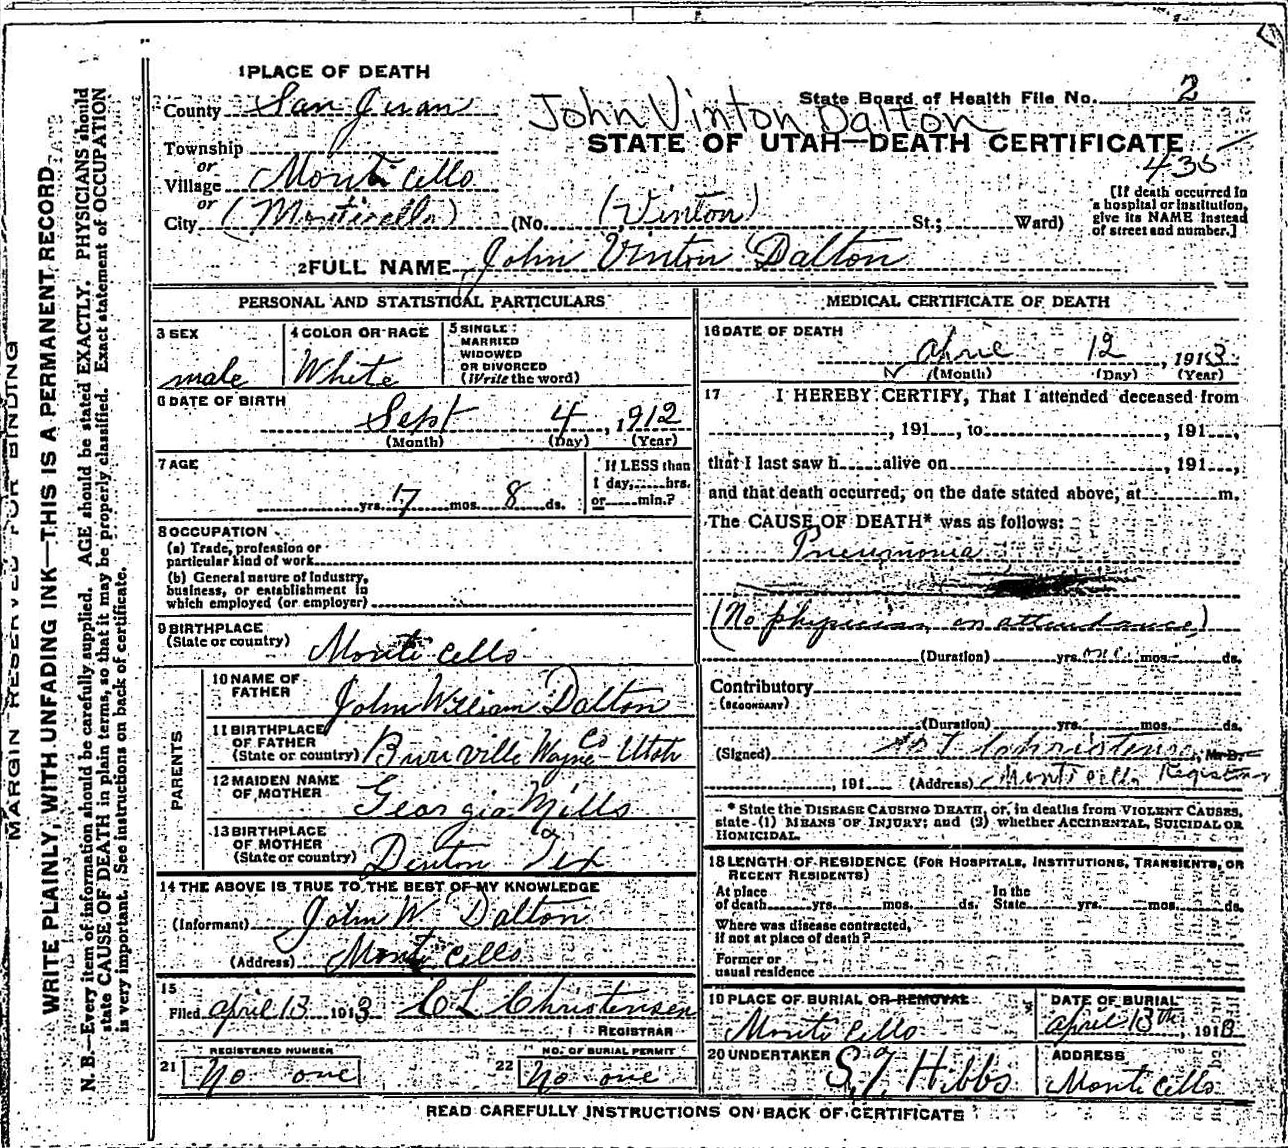 1 PLACE OF DEATH
County San Juan
John Vinton Dalton
State Board of Health File No. 2
STATE OF UTAH—DEATH CERTIFICATE
435
Township
or
Village Monticello
or
City (Monticello) (No. (Vinton) St.; Ward)
[If death occurred in
a hospital or institution,
give its NAME instead
of street and number.]
2 FULL NAME John Vinton Dalton
PERSONAL AND STATISTICAL PARTICULARS
3 SEX
male
4 COLOR OR RACE
White
5 SINGLE
MARRIED
WIDOWED
OR DIVORCED
(Write the word)
6 DATE OF BIRTH
Sept 4, 1912
(Month) (Day) (Year)
7 AGE
yrs. 7 mos. 8 ds.
If LESS than
1 day, hrs.
or min.?
8 OCCUPATION
(a) Trade, profession or
particular kind of work
(b) General nature of Industry,
business, or establishment in
which employed (or employer)
9 BIRTHPLACE
(State or country) Monticello
PARENTS
10 NAME OF
FATHER John William Dalton
11 BIRTHPLACE
OF FATHER
(State or country) Burrville Wayne Co Utah
12 MAIDEN NAME
OF MOTHER Georgia Mills
13 BIRTHPLACE
OF MOTHER
(State or country) Denton Tex
14 THE ABOVE IS TRUE TO THE BEST OF MY KNOWLEDGE
(Informant) John W Dalton
(Address) Monticello
15
Filed april 13 1913 C L Christensen
REGISTRAR
21 REGISTERED NUMBER
No one
22 NO. OF BURIAL PERMIT
No one
MEDICAL CERTIFICATE OF DEATH
16 DATE OF DEATH
April - 12, 1913
(Month) (Day) (Year)
17 I HEREBY CERTIFY, That I attended deceased from
, 191 , to , 191 ,
that I last saw h alive on , 191 ,
and that death occurred, on the date stated above, at m.
The CAUSE OF DEATH* was as follows:
Pneumonia
(No physician in attendance)
(Duration) yrs. mos. ds.
Contributory
(SECONDARY)
(Duration) yrs. mos. ds.
(Signed) Christensen, M. D.
, 191 (Address) Monticello Registrar
* State the DISEASE CAUSING DEATH, or, in deaths from VIOLENT CAUSES,
state (1) MEANS OF INJURY; and (2) whether ACCIDENTAL, SUICIDAL OR
HOMICIDAL.
18 LENGTH OF RESIDENCE (FOR HOSPITALS, INSTITUTIONS, TRANSIENTS, OR
RECENT RESIDENTS)
At place
of death yrs. mos. ds.
In the
State yrs. mos. ds.
Where was disease contracted,
if not at place of death?
Former or
usual residence
19 PLACE OF BURIAL OR REMOVAL
Monticello
DATE OF BURIAL
april 13th, 1913
20 UNDERTAKER S. J. Hibbs
ADDRESS
Monticello
READ CAREFULLY INSTRUCTIONS ON BACK OF CERTIFICATE
MARGIN RESERVED FOR BINDING
WRITE PLAINLY, WITH UNFADING INK—THIS IS A PERMANENT RECORD
N. B.—Every item of information should be carefully supplied. AGE should be stated EXACTLY. PHYSICIANS should
state CAUSE OF DEATH in plain terms, so that it may be properly classified. Exact statement of OCCUPATION
is very important. See instructions on back of certificate.